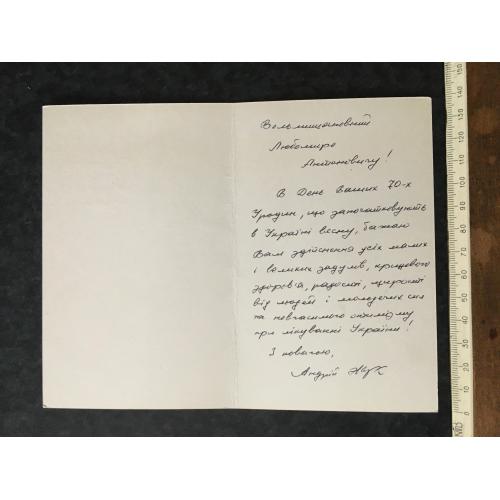 Вельмишановний
Любомире
Антоновичу!
В День Ваших 70-х
Уродин, що започатковують
в Україні весну, бажаю
Вам здійснення усіх малих
і великих задумів, крицевого
здоров'я, радості, щирості
від людей і молодечих сил
та невгасимого оптимізму
при лікуванні України!
З повагою,
Андрій
150
140
130
120
110
100
90
80
70
60
50
40
30
20
10